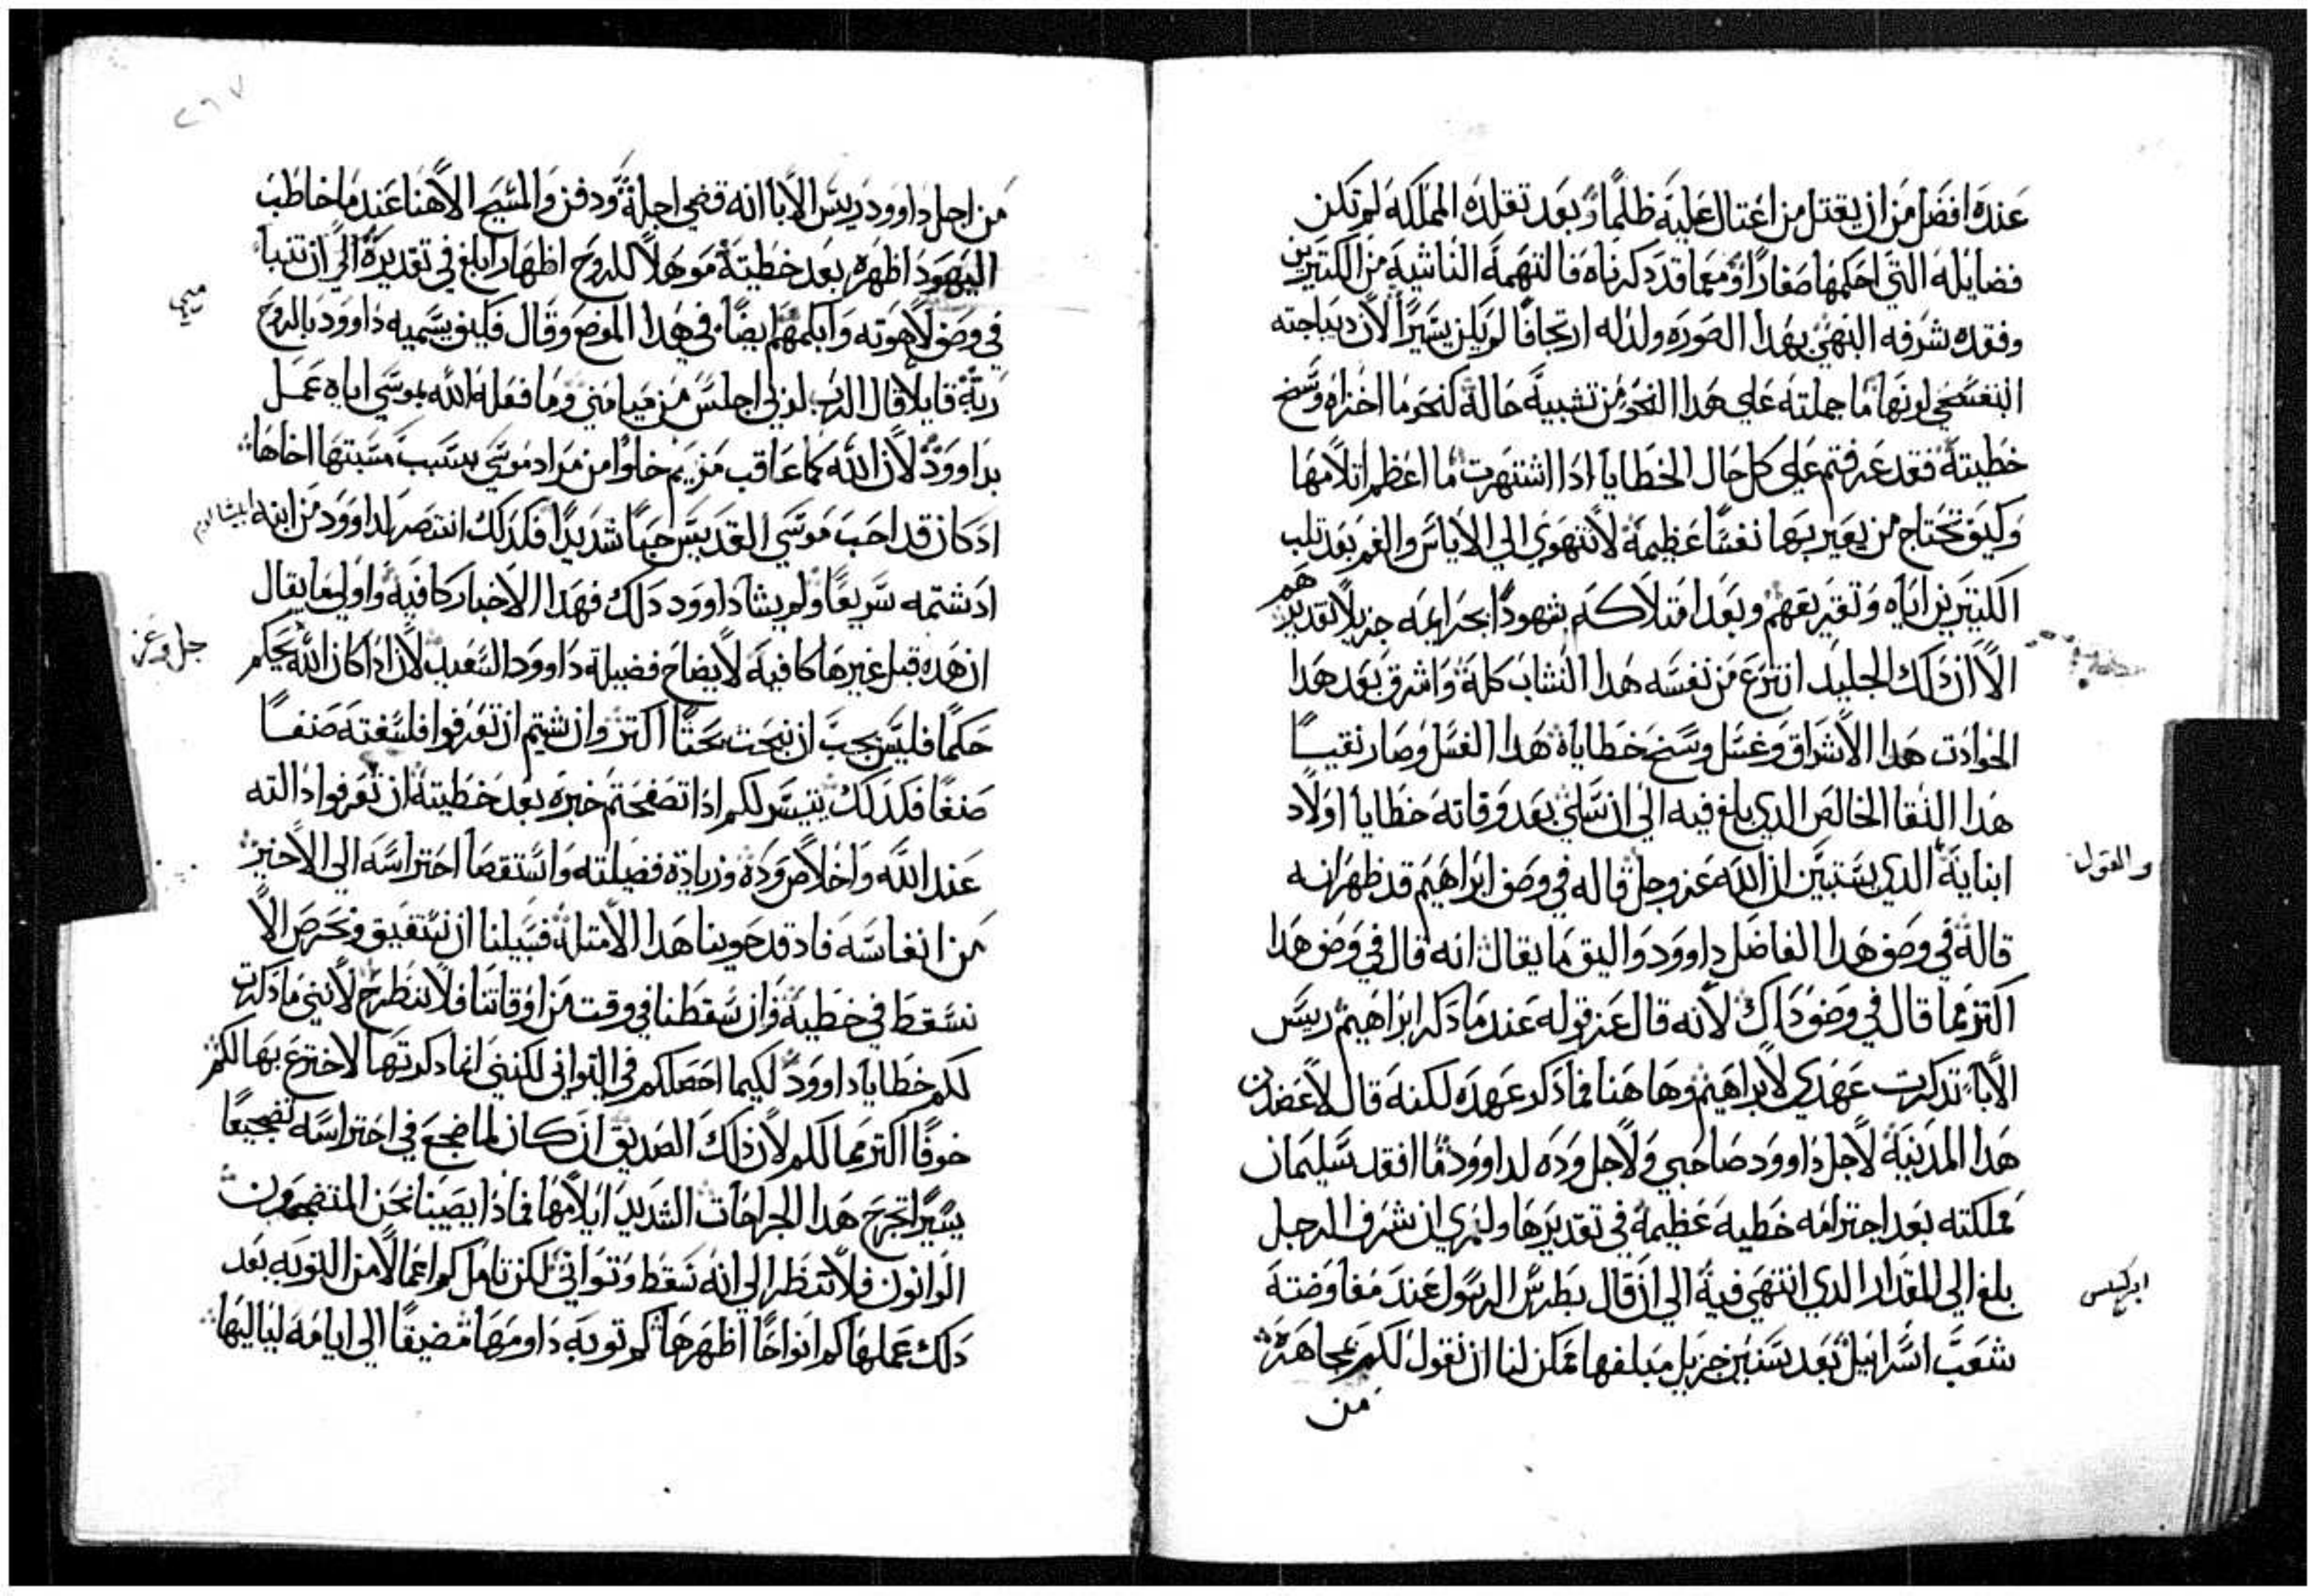 عنده افضل من ان يقتل من اغتال عليه ظلما وبعد تقلده المملكه لم تكن
فضايله التي احكمها صغارا ومعما قد دكرناه فالتهمه الناشيه من الكتيرين
وفقده شرفه البهي بهدا الصوره ولدله ارتجافا لم يكن يسيرا لان ديباجته
البنفسجي لونها ما جملته علي هدا النحو من تشبيه حاله كنحو ما اخزاه وسخ
خطيته فقد عرفتم علي كل حال الخطايا ادا اشتهرت ما اعظم اتلامها
وكيف تحتاج من يعير بها نفسا عظيمة لا تتهوي الي الاياس والغم بعد تلب
الكتيرين اياه وتقريعهم وبعد امتلاكه شهودا بجرايمه جزيلا تقديرهم
الا ان دلك الجليد انتزع من نفسه هدا النشاب كلة واشرق بعد هدا
الحوادت هدا الاشراق وغسل وسخ خطاياه هدا الغسل وصار نقيا
هدا النقا الخالص الدي بلغ فيه الي ان سلي بعد وفاته خطايا اولاد
ابنايه الدي يستبين ان الله عز وجل قاله في وصف ابراهيم قد ظهر انه
والقول
قاله في وصف هدا الفاضل داوود واليق ما يقال انه قال في وصف هدا
اكتر مما قال في وصف داك لانه قال عز قوله عند ما دكر ابراهيم ريس
الابا تدكرت عهدي لابراهيم وها هنا فما دكر عهده لكنه قال لاعضدن
هدا المدنية لاجل داوود صاحبي ولاجل وده لداوود ما افقد سليمان
مملكته بعد اجترامه خطيه عظيمة في تقديرها ولعمري ان شرف الرجل
بلغ الي المقدار الدي انتهي فيه الي ان قال بطرس الرسول عند مفاوضته
ابركسس
شعب اسراييل بعد سنين جزيل مبلغها تمكن لنا ان نقول لكم مجاهرة
من
٢٦٧
من اجل داوود ريس الابا انه قضي اجلة ودفن والمسيح الاهنا عند ما خاطب
اليهود اظهره بعد خطيته موهلا للروح اظهارا بلغ في تقديره الي ان تنبا
في وصف لاهوته وابكمهم ايضا في هدا الموضع وقال فكيف يسميه داوود بالروح
متي
ربة قايلا قال الرب لربي اجلس من ميامني وما فعله الله بموسي اياه عمل
بداوود لان الله كما عاقب مريم خلوا من مراد موسي بسبب مسبتها اخاها
اد كان قد احب موسي القديس حبا شديدا فكدلك انتصر لداوود من ابنه ابيشالوم
اد شتمه سريعا ولم يشا داوود دلك فهدا الاخبار كافيه واولي ما يقال
ان هده قبل غيرها كافية لايضاح فضيلة داوود السعيد لان ادا كان الله يحكم
جل وعز
حكما فليس يجب ان نبحت بحتا اكتر وان شيتم ان تعرفوا فلسفته صنفا
صنفا فكدلك يتيسر لكم ادا تصفحتم خبره بعد خطيته ان تعرفوا دالته
عند الله واخلاص وده وزيادة فضيلته واستقصا احتراسه الي الاخير
من انفاسه فاد قد حوينا هدا الامتلة فسبيلنا ان نستفيق ونحرص الا
نسقط في خطية وان سقطنا في وقت من اوقاتنا فلا ننطرح لانني ما دكرت
لكم خطايا داوود لكيما احصلكم في التواني لكنني انما دكرتها لاخترع بها لكم
خوفا اكتر مما لكم لان داك الصديق ان كان لما ضجع في احتراسه تضجيعا
يسيرا تجرح هدا الجراحات الشديد ايلامها فمادا يصيبنا نحن المتضجعون
الوانون فلا تنظر الي انه سقط وتواني لكن تامل كم اعمالا من التوبه بعد
دلك عملها كم انواحا اظهرها كم توبه داومها مضيفا الي ايامه لياليها